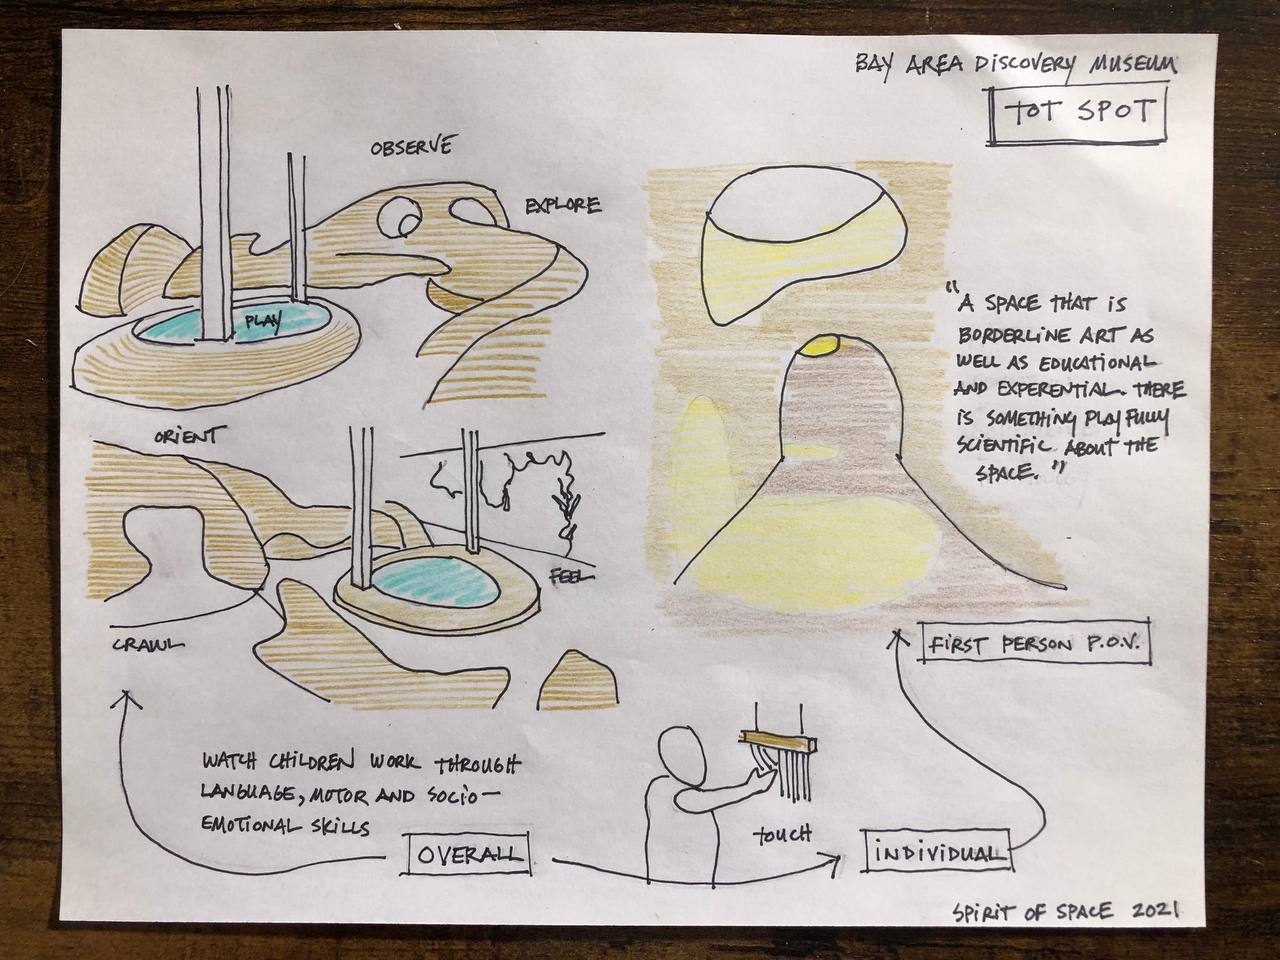 BAY AREA DISCOVERY MUSEUM
TOT SPOT
OBSERVE
EXPLORE
PLAY
"A SPACE THAT IS
BORDERLINE ART AS
WELL AS EDUCATIONAL
AND EXPERENTIAL. THERE
IS SOMETHING PLAYFULLY
SCIENTIFIC ABOUT THE
SPACE."
ORIENT
FEEL
CRAWL
FIRST PERSON P.O.V.
WATCH CHILDREN WORK THROUGH
LANGUAGE, MOTOR AND SOCIO-
EMOTIONAL SKILLS
TOUCH
OVERALL
INDIVIDUAL
SPIRIT OF SPACE 2021